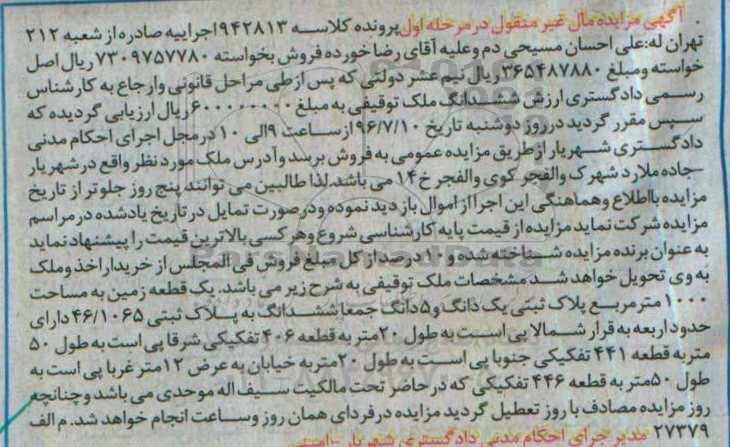 آگهی مزایده مال غیر منقول در مرحله اول پرونده کلاسه ۹۴۲۸۱۳ اجراییه صادره از شعبه ۲۱۲
تهران له: علی احسان مسیحی دم و علیه آقای رضا خورده فروش بخواسته ۷۳۰۹۷۵۷۷۸۰ ریال اصل
خواسته و مبلغ ۳۶۵۴۸۷۸۸۰ ریال نیم عشر دولتی که پس از طی مراحل قانونی وارجاع به کارشناس
رسمی دادگستری ارزش ششدانگ ملک توقیفی به مبلغ ۶۰۰۰۰۰۰۰۰۰ ریال ارزیابی گردیده که
سپس مقرر گردید در روز دوشنبه تاریخ ۹۶/۷/۱۰ از ساعت ۹ الی ۱۰ در محل اجرای احکام مدنی
دادگستری شهریار از طریق مزایده عمومی به فروش برسد و آدرس ملک مورد نظر واقع در شهریار
-جاده ملارد شهرک والفجر کوی والفجر خ ۱۴ می باشد. لذا طالبین می توانند پنج روز جلوتر از تاریخ
مزایده با اطلاع و هماهنگی این اجرا از اموال بازدید نموده و در صورت تمایل در تاریخ یادشده در مراسم
مزایده شرکت نماید مزایده از قیمت پایه کارشناسی شروع و هر کسی بالاترین قیمت را پیشنهاد نماید
به عنوان برنده مزایده شناخته شده و ۱۰ درصد از کل مبلغ فروش فی المجلس از خریدار اخذ و ملک
به وی تحویل خواهد شد مشخصات ملک توقیفی به شرح زیر می باشد. یک قطعه زمین به مساحت
۱۰۰۰ متر مربع پلاک ثبتی یک دانگ و ۵ دانگ جمعا ششدانگ به پلاک ثبتی ۴۶/۱۰۶۵ دارای
حدود اربعه به قرار شمالا پی است به طول ۲۰ متر به قطعه ۴۰۶ تفکیکی شرقا پی است به طول ۵۰
متر به قطعه ۴۴۱ تفکیکی جنوبا پی است به طول ۲۰ متر به خیابان به عرض ۱۲ متر غربا پی است به
طول ۵۰ متر به قطعه ۴۴۶ تفکیکی که در حاضر تحت مالکیت سیف اله موحدی می باشد و چنانچه
روز مزایده مصادف با روز تعطیل گردید مزایده در فردای همان روز و ساعت انجام خواهد شد. م الف
۲۷۳۷۹ مدیر اجرای احکام مدنی دادگستری شهریار